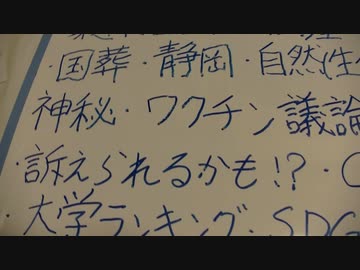 ・国葬・静岡・自然性
神秘・ワクチン議論
・訴えられるかも!?・
・大学ランキング・SDG